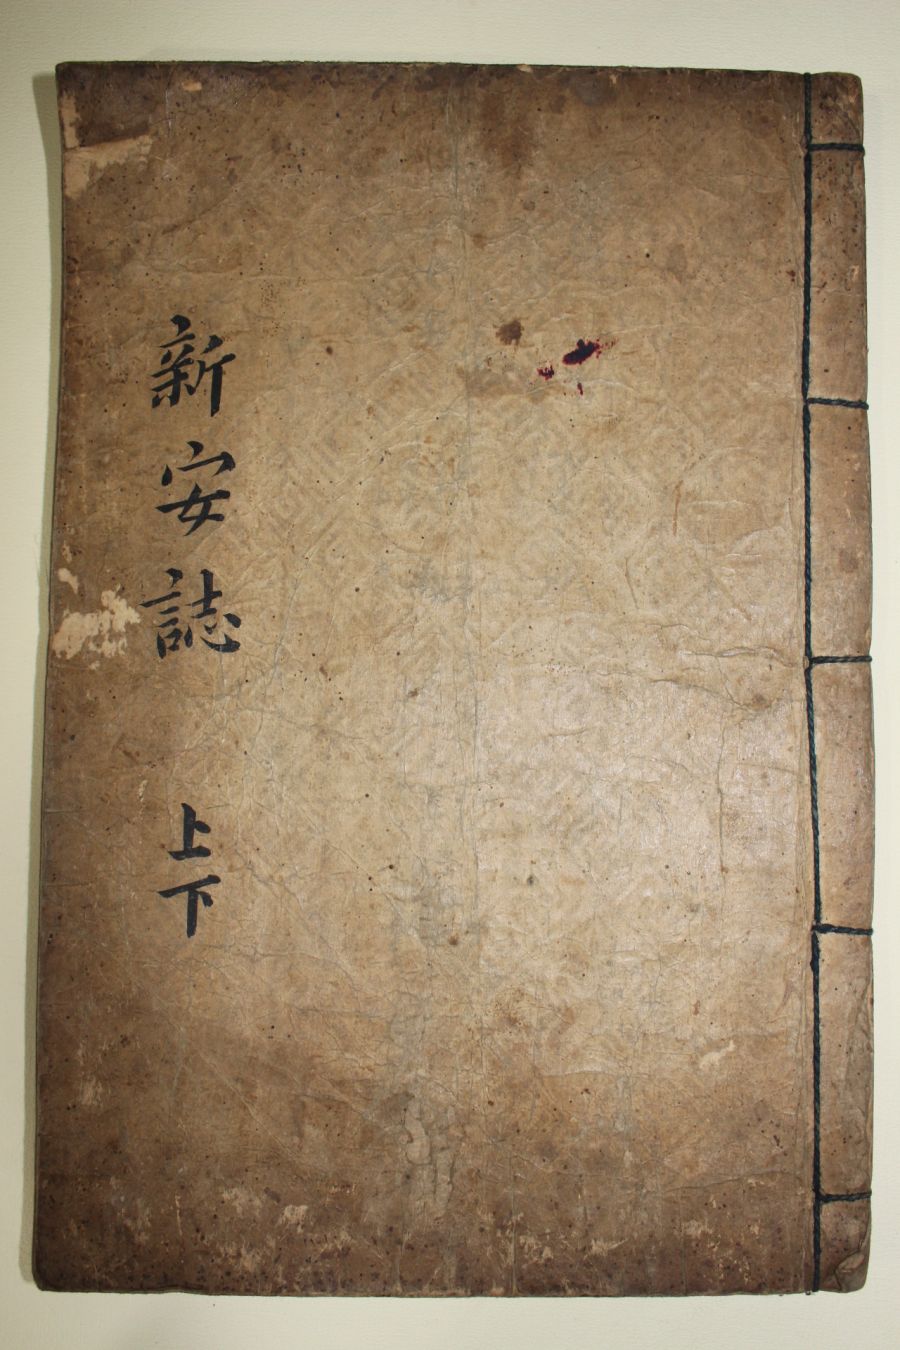 新安誌
上下